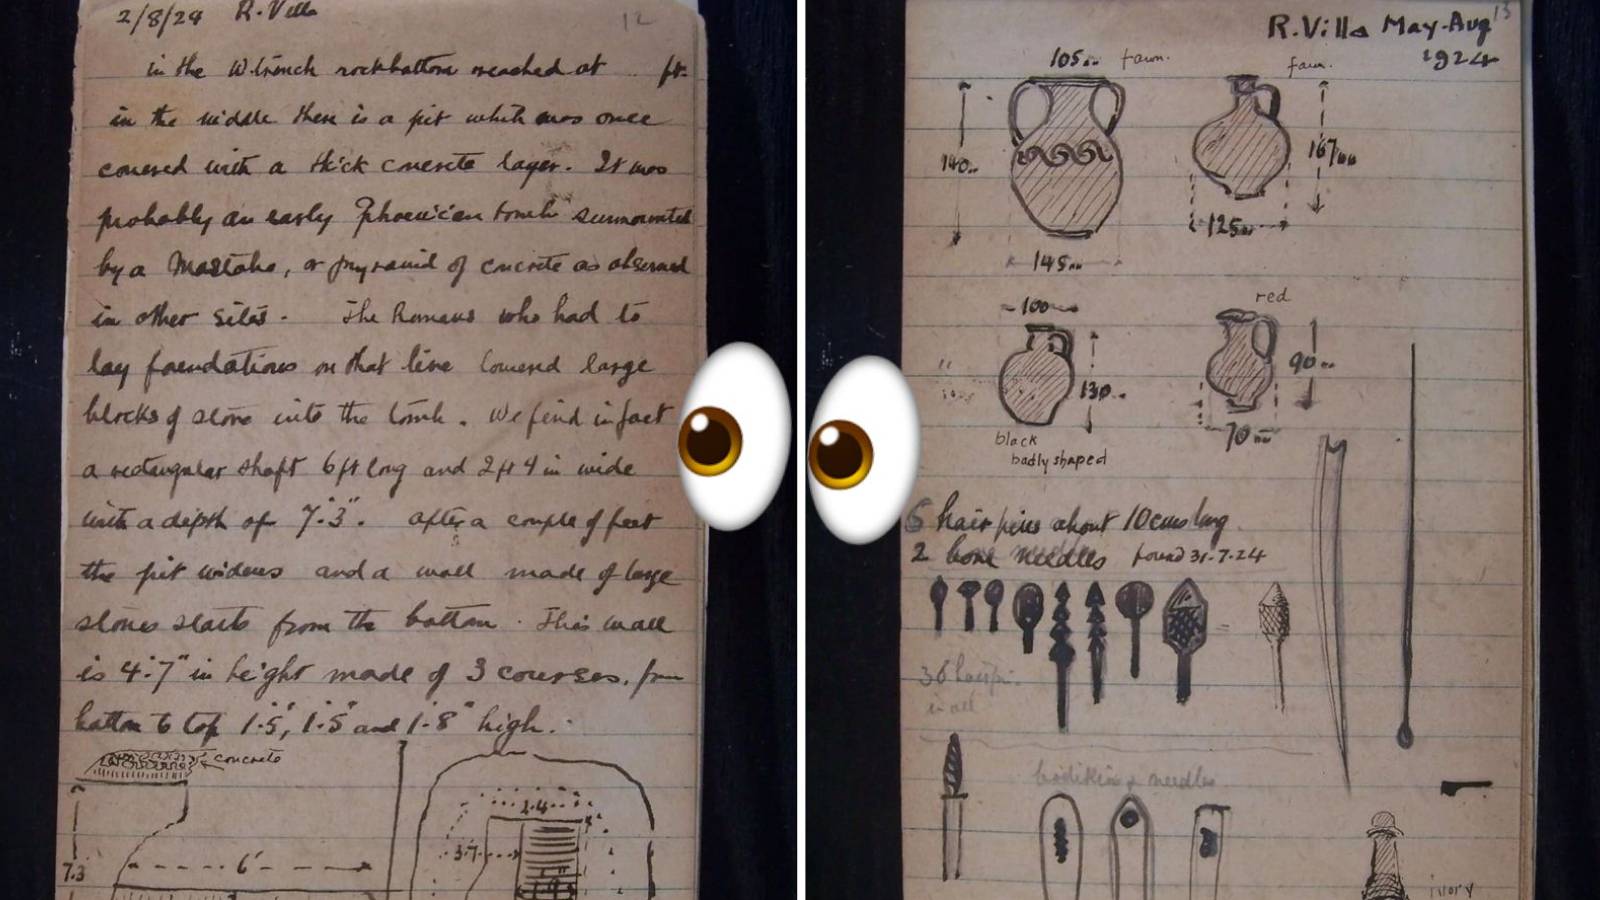 2/8/24 R. Villa 12
in the W. trench rockbottom reached at .. ft.
in the middle there is a pit which was once
covered with a thick concrete layer. It was
probably an early Phoenician tomb surmounted
by a Mastaba, or pyramid of concrete as observed
in other sites. The Romans who had to
lay foundations on that line lowered large
blocks of stone into the tomb. We find in fact
a rectangular shaft 6 ft long and 2 ft 4 in wide
with a depth of 7'.3". After a couple of feet
the pit widens and a wall made of large
stones starts from the bottom. This wall
is 4'.7" in height made of 3 courses, from
bottom to top 1'.5", 1'.5" and 1'.8" high.
concrete
2.4
3.7
7.3
6'
13
R. Villa May-Aug
1924
105 fawn.
fawn.
140
167mm
125
145
100
red
130
90
70
black
badly shaped
6 hair pins about 10 cms long
2 bone needles found 31.7.24
36 hairpi
in all
bodkins & needles
ivory